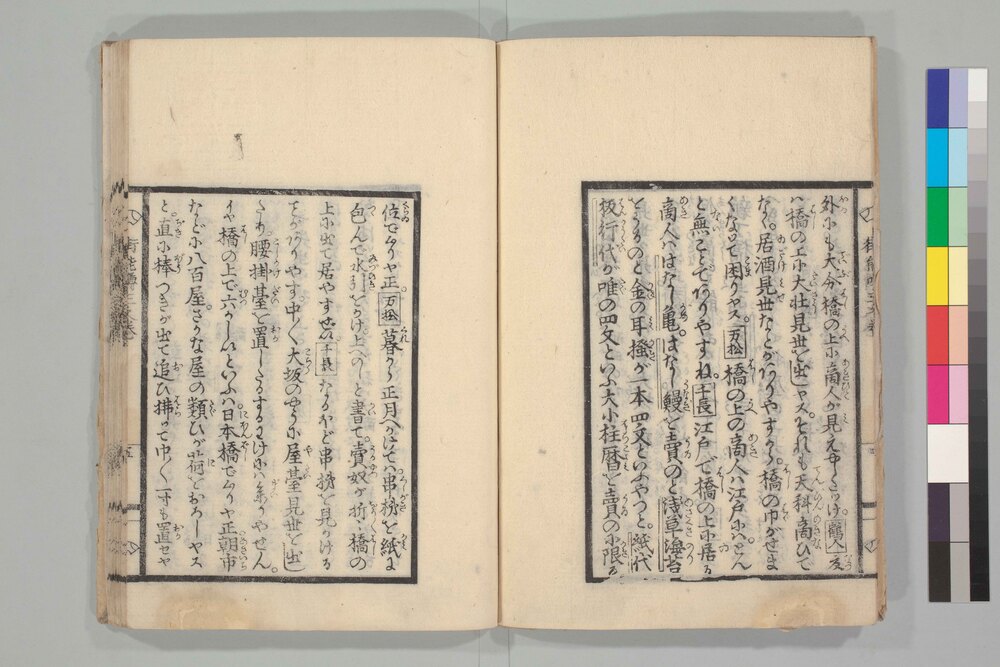 外にも大分橋の上に商人が見えやしたつけ。鶴人 左
ハ橋の上に大壮見世を出しヤス。それも天科商ひで
なく。居酒見世などがありやすから。橋の巾がせま
くなつて困りヤス。万松 橋の上の商人ハ江戸にハとん
と無ことでありやすね。千長 江戸で橋の上に居る
商人ハはなし亀。はなし鰻を売のと浅草海苔
をうるのと金の耳掻が一本四文といふやつと。紙代
板行代が唯の四文といふ大小柱暦を売のに限る
位でムりヤ正 万松 暮から正月へかけてハ串柿を紙に
包んで水引をかけ上へのしと書て。売奴が折ふ橋の
上に出て居やすぜ。千長 なるほど串柿を見かける
事がありやす。中〱大坂のやうに屋台見世を出し
たり。腰掛台を置したりするわけにハ参りやせん。
イヤ橋の上で六かしいといふハ日本橋でムりヤ正朝市
などに八百屋。さかな屋の類ひが荷をおろしヤス
と直に棒つきが出て追ひ拂つて中〱一寸も置セヤ